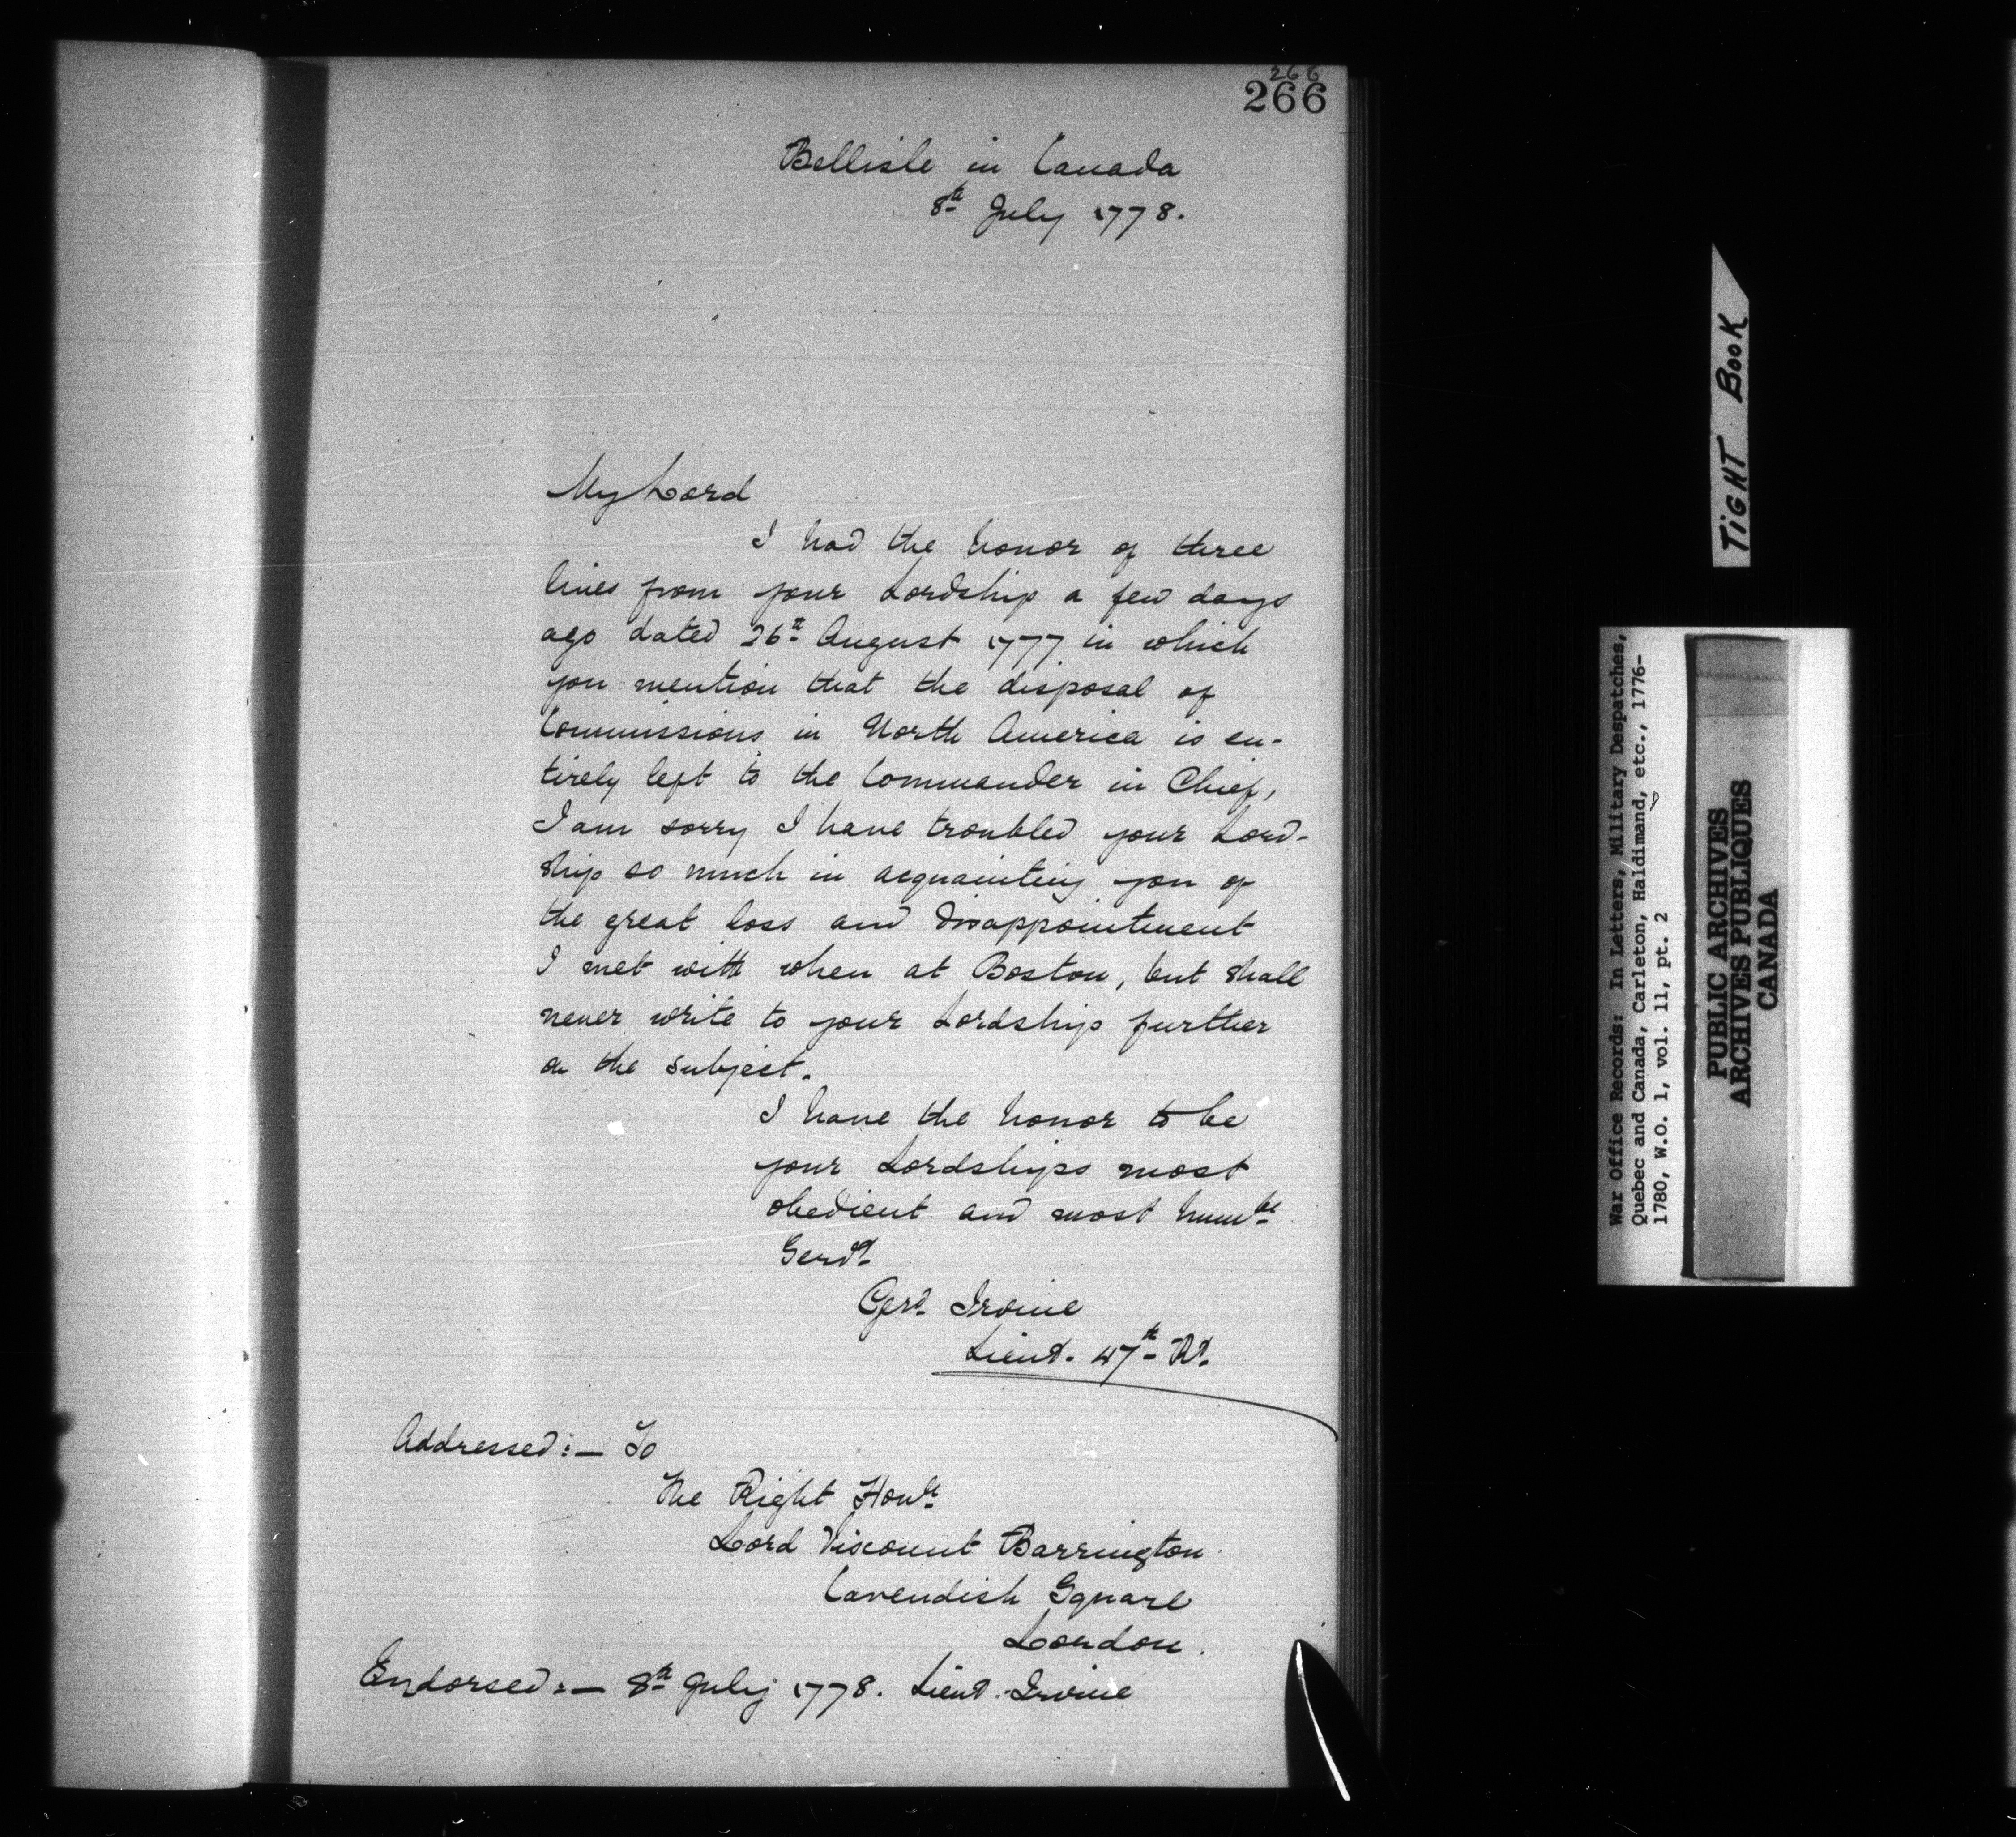 266
266
Bellisle in Canada
8th July 1778.
My Lord
I had the honor of three
lines from your Lordship a few days
ago dated 26th August 1777 in which
you mention that the disposal of
Commissions in North America is en-
tirely left to the Commander in Chief,
I am sorry I have troubled your Lord-
ship so much in acquainting you of
the great loss and disappointment
I met with when at Boston, but shall
never write to your Lordship further
on the subject.
I have the honor to be
your Lordships most
obedient and most humble
Servt
Gerd Irvine
Lieut. 47th Rt
Addressed:— To
The Right Honble
Lord Viscount Barrington
Cavendish Square
London.
Endorsed:— 8th July 1778. Lieut. Irvine
TIGHT BOOK
War Office Records: In Letters, Military Despatches,
Quebec and Canada, Carleton, Haldimand, etc., 1776-
1780, W.O. 1, vol. 11, pt. 2
PUBLIC ARCHIVES
ARCHIVES PUBLIQUES
CANADA